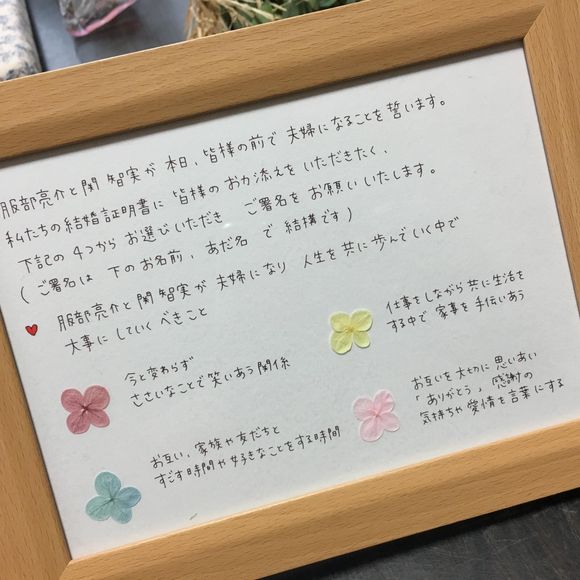 服部亮介と関 智実が 本日、皆様の前で 夫婦になることを 誓います。
私たちの結婚証明書に 皆様の お力添えを いただきたく、
下記の 4つから お選びいただき ご署名を お願いいたします。
(ご署名は 下のお名前、あだ名 で 結構です)
服部亮介と関 智実が 夫婦になり 人生を 共に 歩んでいく中で
大事に していくべきこと
今と変わらず
ささいなことで笑いあう関係
仕事をしながら 共に生活を
する中で 家事を 手伝いあう
お互い、家族や友だちと
すごす時間や好きなことをする時間
お互いを大切に 思いあい
「ありがとう」感謝の
気持ちや愛情を言葉にする